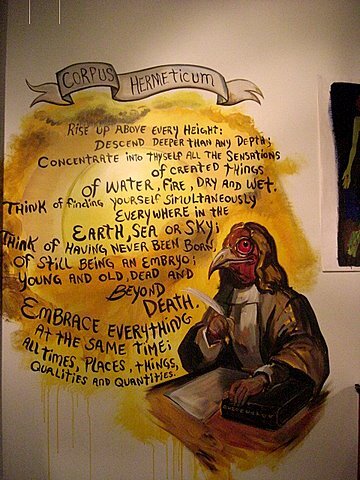 CORPUS HERMETICUM
RISE UP ABOVE EVERY HEIGHT;
DESCEND DEEPER THAN ANY DEPTH;
CONCENTRATE INTO THYSELF ALL THE SENSATIONS
OF CREATED THINGS
OF WATER, FIRE, DRY AND WET.
THINK OF FINDING YOURSELF SIMULTANEOUSLY
EVERYWHERE IN THE
EARTH, SEA OR SKY;
THINK OF HAVING NEVER BEEN BORN,
OF STILL BEING AN EMBRYO;
YOUNG AND OLD, DEAD AND
BEYOND
DEATH.
EMBRACE EVERYTHING
AT THE SAME TIME;
ALL TIMES, PLACES, THINGS,
QUALITIES AND QUANTITIES.